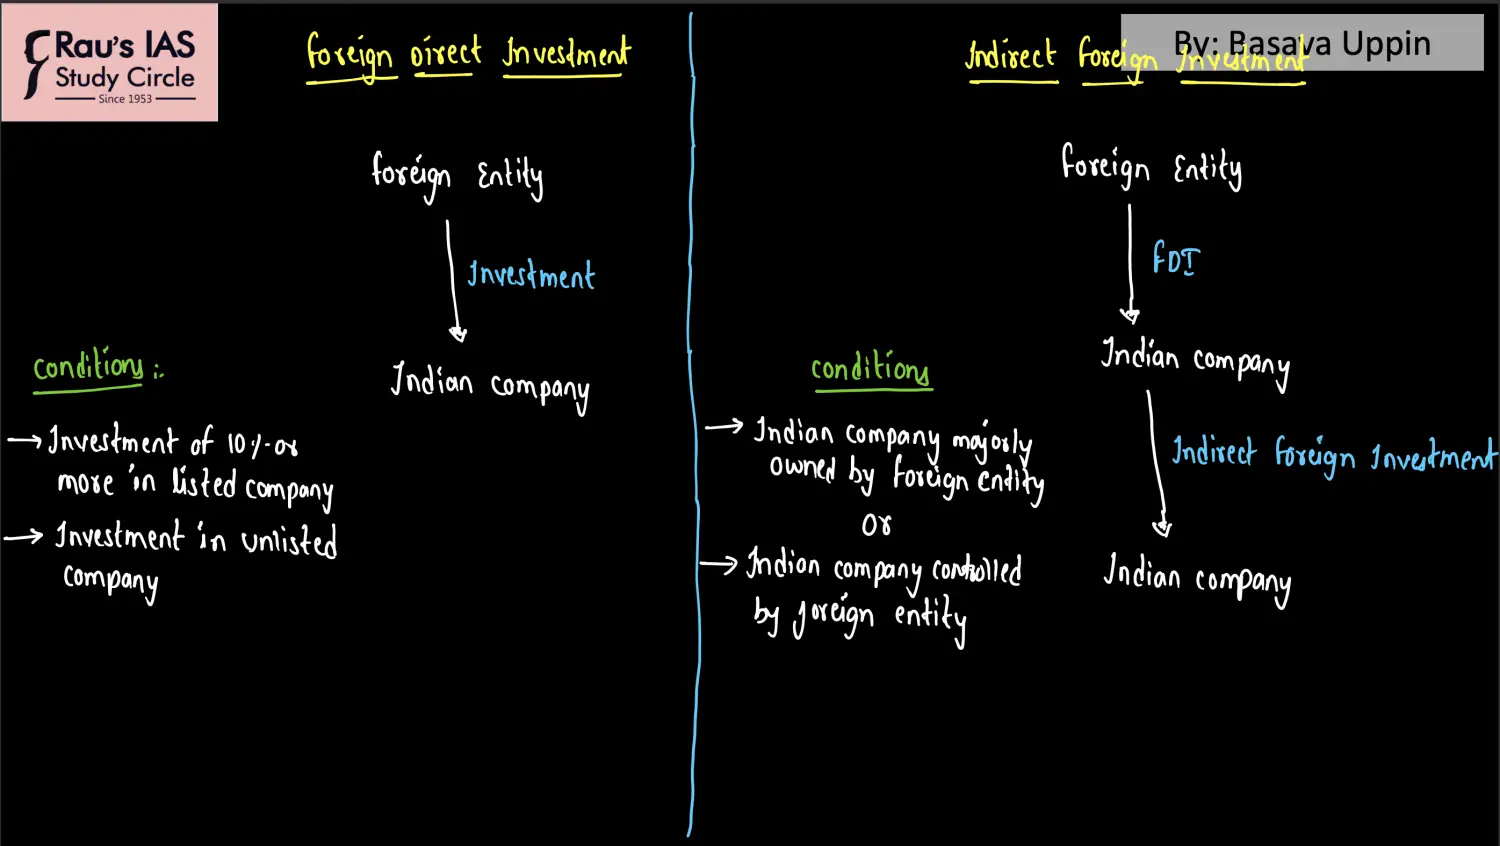 Rau's IAS
Study Circle
Since 1953
Foreign Direct Investment
Foreign Entity
Investment
Indian company
Conditions:-
→ Investment of 10% or
more in listed company
→ Investment in unlisted
company
By: Basava Uppin
Indirect Foreign Investment
Foreign Entity
FDI
Indian company
Indirect Foreign Investment
Indian company
Conditions
→ Indian company majorly
owned by foreign entity
OR
→ Indian company controlled
by foreign entity